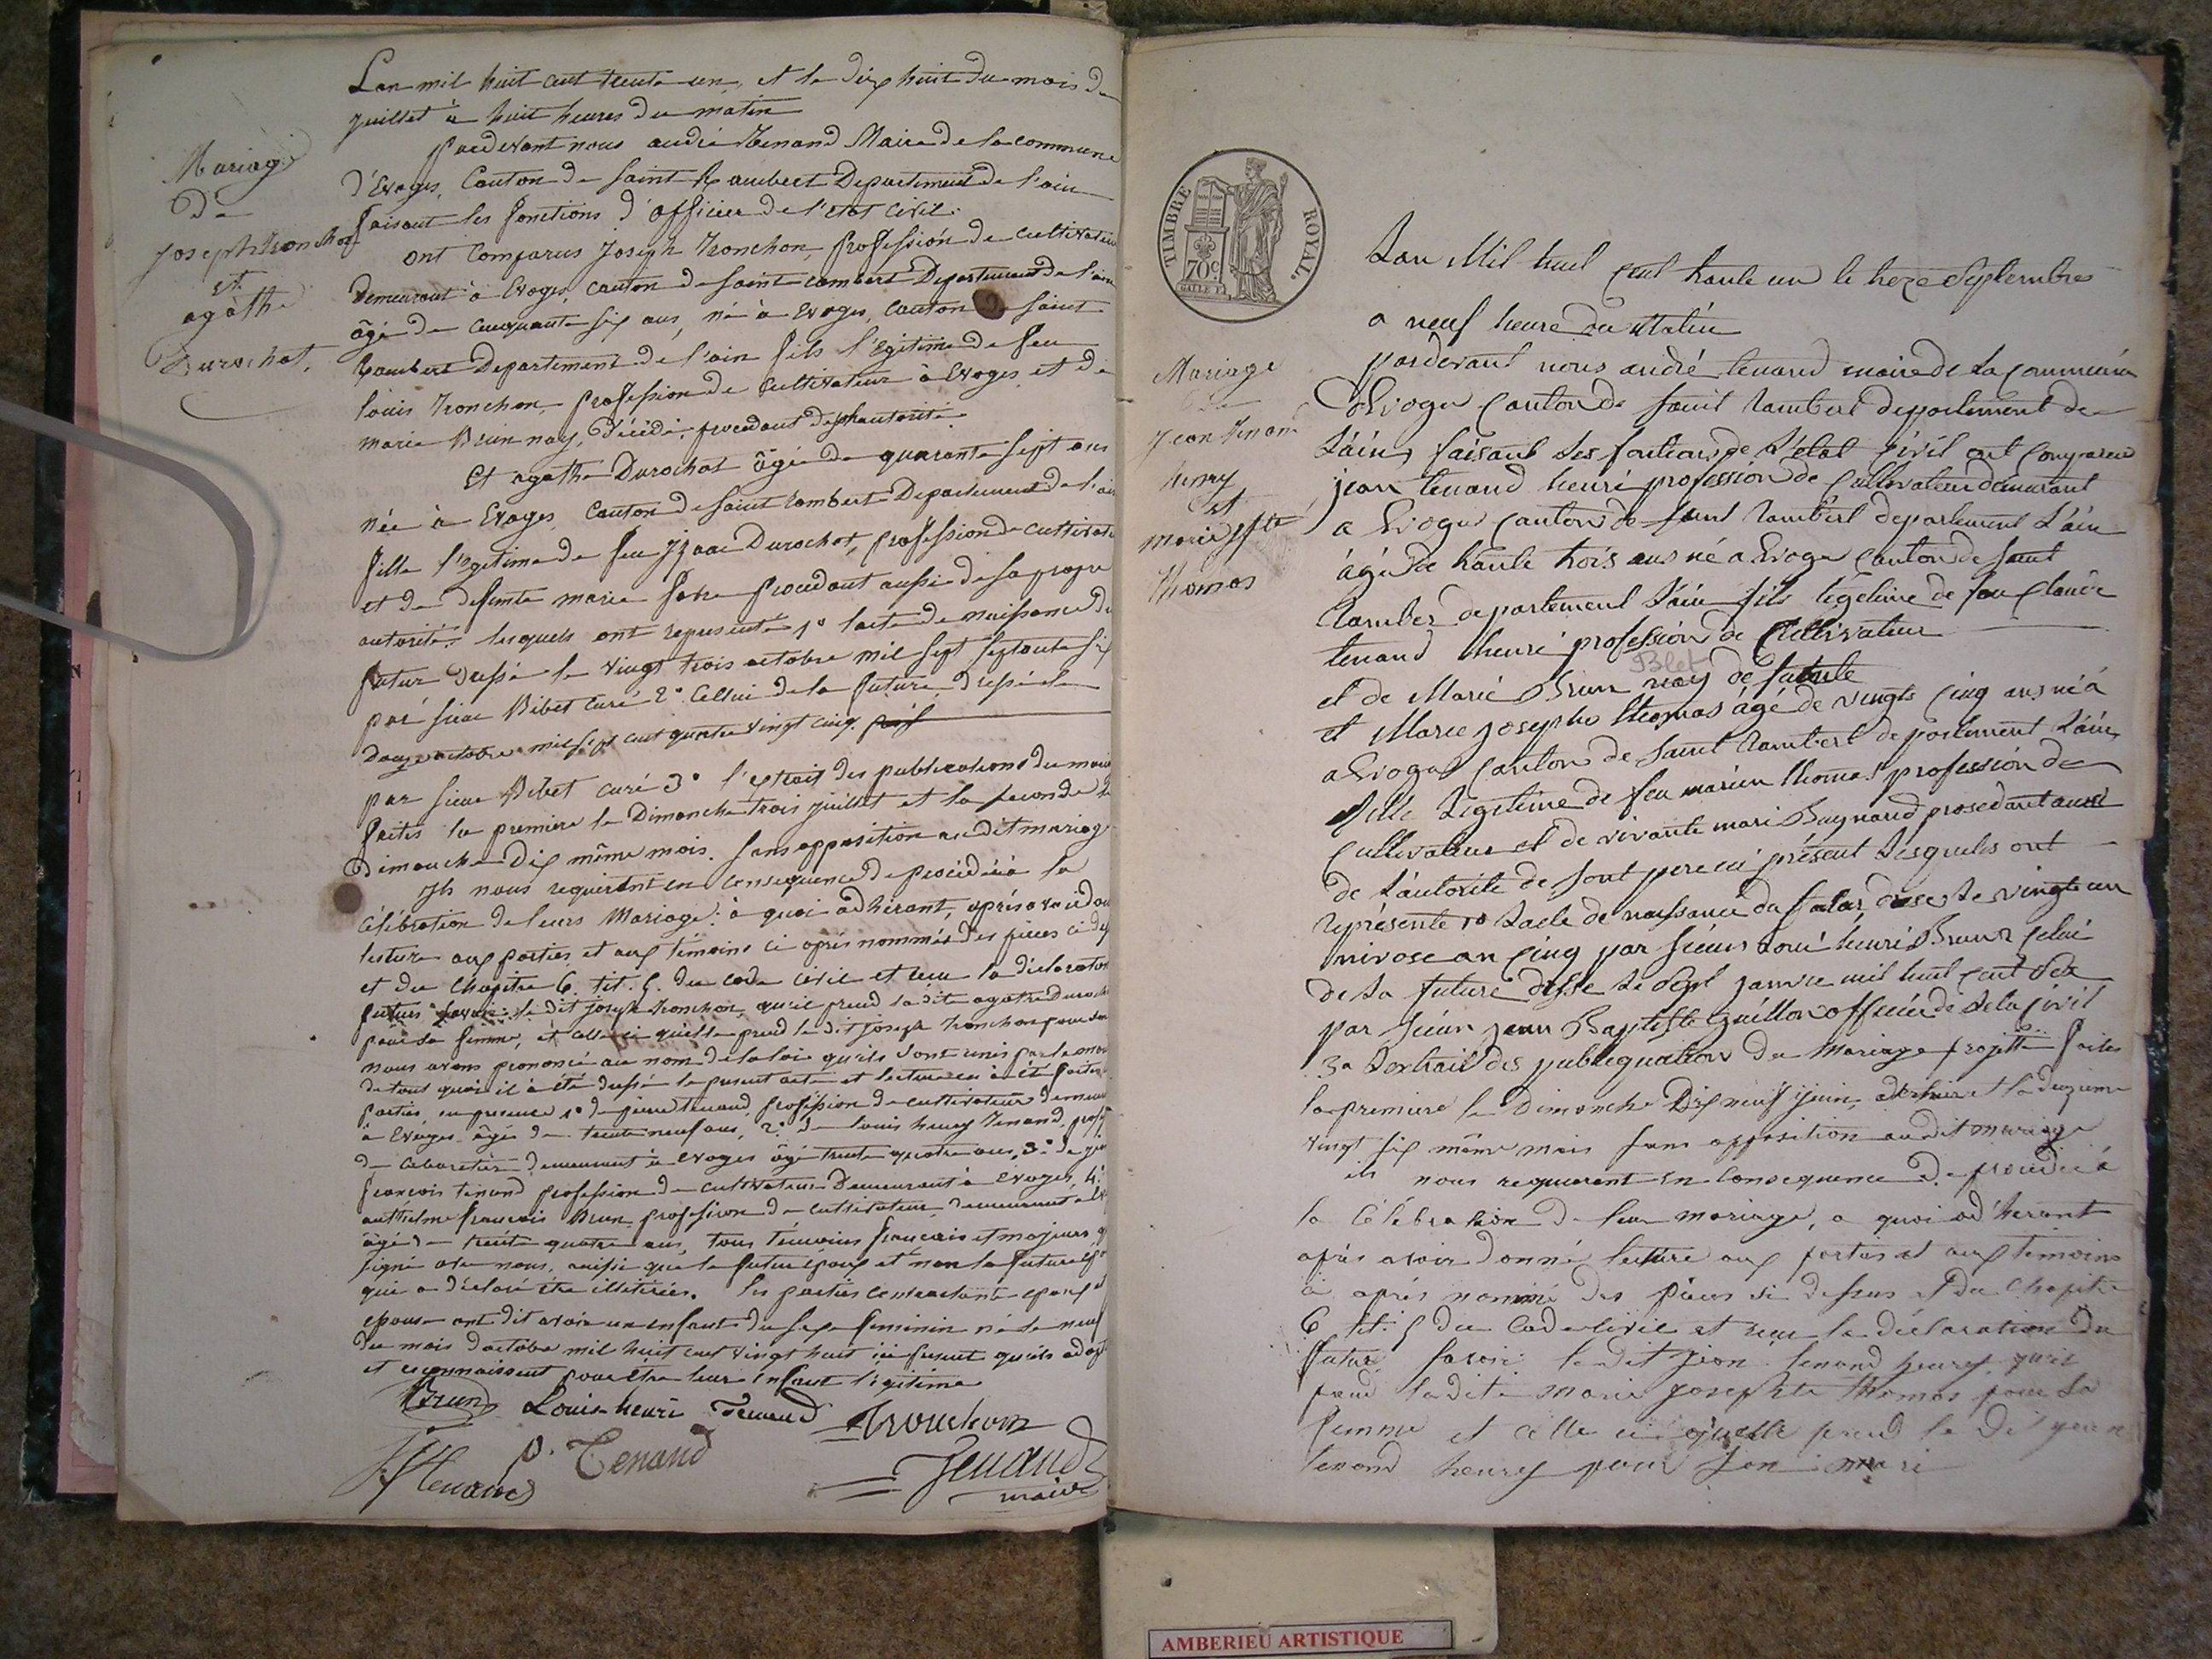 Mariage
de
joseph tronchon
et
agathe
Durochat.
Lan mil huit cent trente un, et le dix huit du mois de
juillet à huit heures du matin
pardevant nous andré Tenand Maire de la commune
d'Evoges, Canton de saint Rambert Departement de l'ain
faisant les fonctions d'officier de l'etat civil.
ont comparus joseph tronchon, profession de cultivateur
demeurant à Evoges, canton de saint rambert Departement de l'ain
âgé de cinquante six ans, né à Evoges, canton de saint
Rambert Departement de l'ain fils l'égitime de feu
louis tronchon, profession de cultivateur à Evoges et de
marie Brun nay, décédé,
Et agathe Durochat âgée de quarante sept ans
née à Evoges Canton de saint rambert Departement de l'ain
fille l'egitime de feu Izaac Durochat, profession de cultivateur
et de defunte marie procedant aussi de sa propre
autorité; lesquels ont representé 1° l'acte de naissance du
futur dressé le vingt trois octobre mil sept septante six
par sieur Bibet curé 2° Cellui de la future dressé le
douze octobre mil sept cent quatre vingt cinq
par sieur Bibet curé 3° l'extrait des publications du mariage
faites la premiere le Dimanche trois juillet et la seconde le
Dimanche Dix même mois. sans opposition audit mariage
Ils nous requirent en consequence de procéder à la
célébration de leurs Mariage: à quoi adhérant, après avoir donné
lecture aux parties et aux témoins ci après nommés des pièces ci des
et du chapitre 6. tit. 5. du code civil et recu la déclaration
futurs savoir le dit joseph tronchon, qu'il prend la dite agathe Durochat
pour sa femme, et celle ci qu'elle prend le dit joseph tronchon pour son
nous avons prononcé au nom de la loi qu'ils sont unis par le mariage
de tout quoi il a été dressé le present acte et lecture en a été faite
parties, en presence 1° de pierre tenand, profession de cultivateur demeurant
à Evoges âgé de trente neuf ans, 2° de louis henry Tenand, prof
de cabaretier demeurant à Evoges âgé trente quatre ans, 3° de
françois tenand profession de cultivateur Demeurant à Evoges, 4°
anthelme françois Brun profession de cultivateur, demeurant à
âgé de trente quatre ans, tous témoins francais et majeurs
signé avec nous, ainsi que le futur époux et non la future
qui a déclaré être illitérée. les parties contractante epoux et
epouse ont dit avoir un enfant du sexe feminin né le neuf
du mois doctobre mil huit cent vingt huit ici present qu'ils adop
et reconnaissent pour être leur Enfant l'égitime
Brun Louis henri Tenand Tronchon
Tenand p. Tenand Tenand
maire
TIMBRE ROYAL
70c
Mariage
de
jean tenand
henry
et
marie jphte
thomas
Lan Mil huit cent trante un le treze Septembre
a neuf heure du Matin
pardevant nous andré tenand maire de la commune
d'Evoges Canton de Saint rambert departement de
L'ain, faisant les de l'état sivil ont comparu
jean tenand henri profession de cultivateur demeurant
a Evoges canton de saint rambert departement L'ain
âgé de trante trois ans né a Evoges canton de saint
rambert departement L'ain fils légétime de feu claude
tenand henri profession de cultivateur
Blet
et de Marie Brun nay
et Marie josephe thomas âgé de vingts cinq ans né à
a Evoges canton de saint rambert departement L'ain
fille legitime de feu thomas profession de
cultivateur et de vivante mari Baynand prosedant aussi
de l'autorité de sont pere ici présent lesquels ont
représenté 1° l'acte de naissance du dresé le vingte un
nivose an cinq par sieur henri Brun 2 celui
de la future dressé le sept janvie mil huit cent six
par sieur jean Baptiste Guillon officié de de
3° L'extrait des publiquation du Mariage projetté faites
la premiere le Dimanche Dix neuf juin, dernier et la deuxieme
vingt six même mois sans opposition audit mariage
ils nous requierent en consequence de procéder à
la célébration de leur mariage, a quoi ad'herant
après avoir donné lecture aux parties et aux témoins
ci après nommé des pièces si dessus et du chapitre
6 tit. 5 du Code civil et recu la déclaration du
futur savoir le dit jean tenand henry qu'il
prend la dite marie josephte thomas pour sa
femme et celle ci qu'elle prend le dit jean
tenand henry pour son mari
AMBERIEU ARTISTIQUE